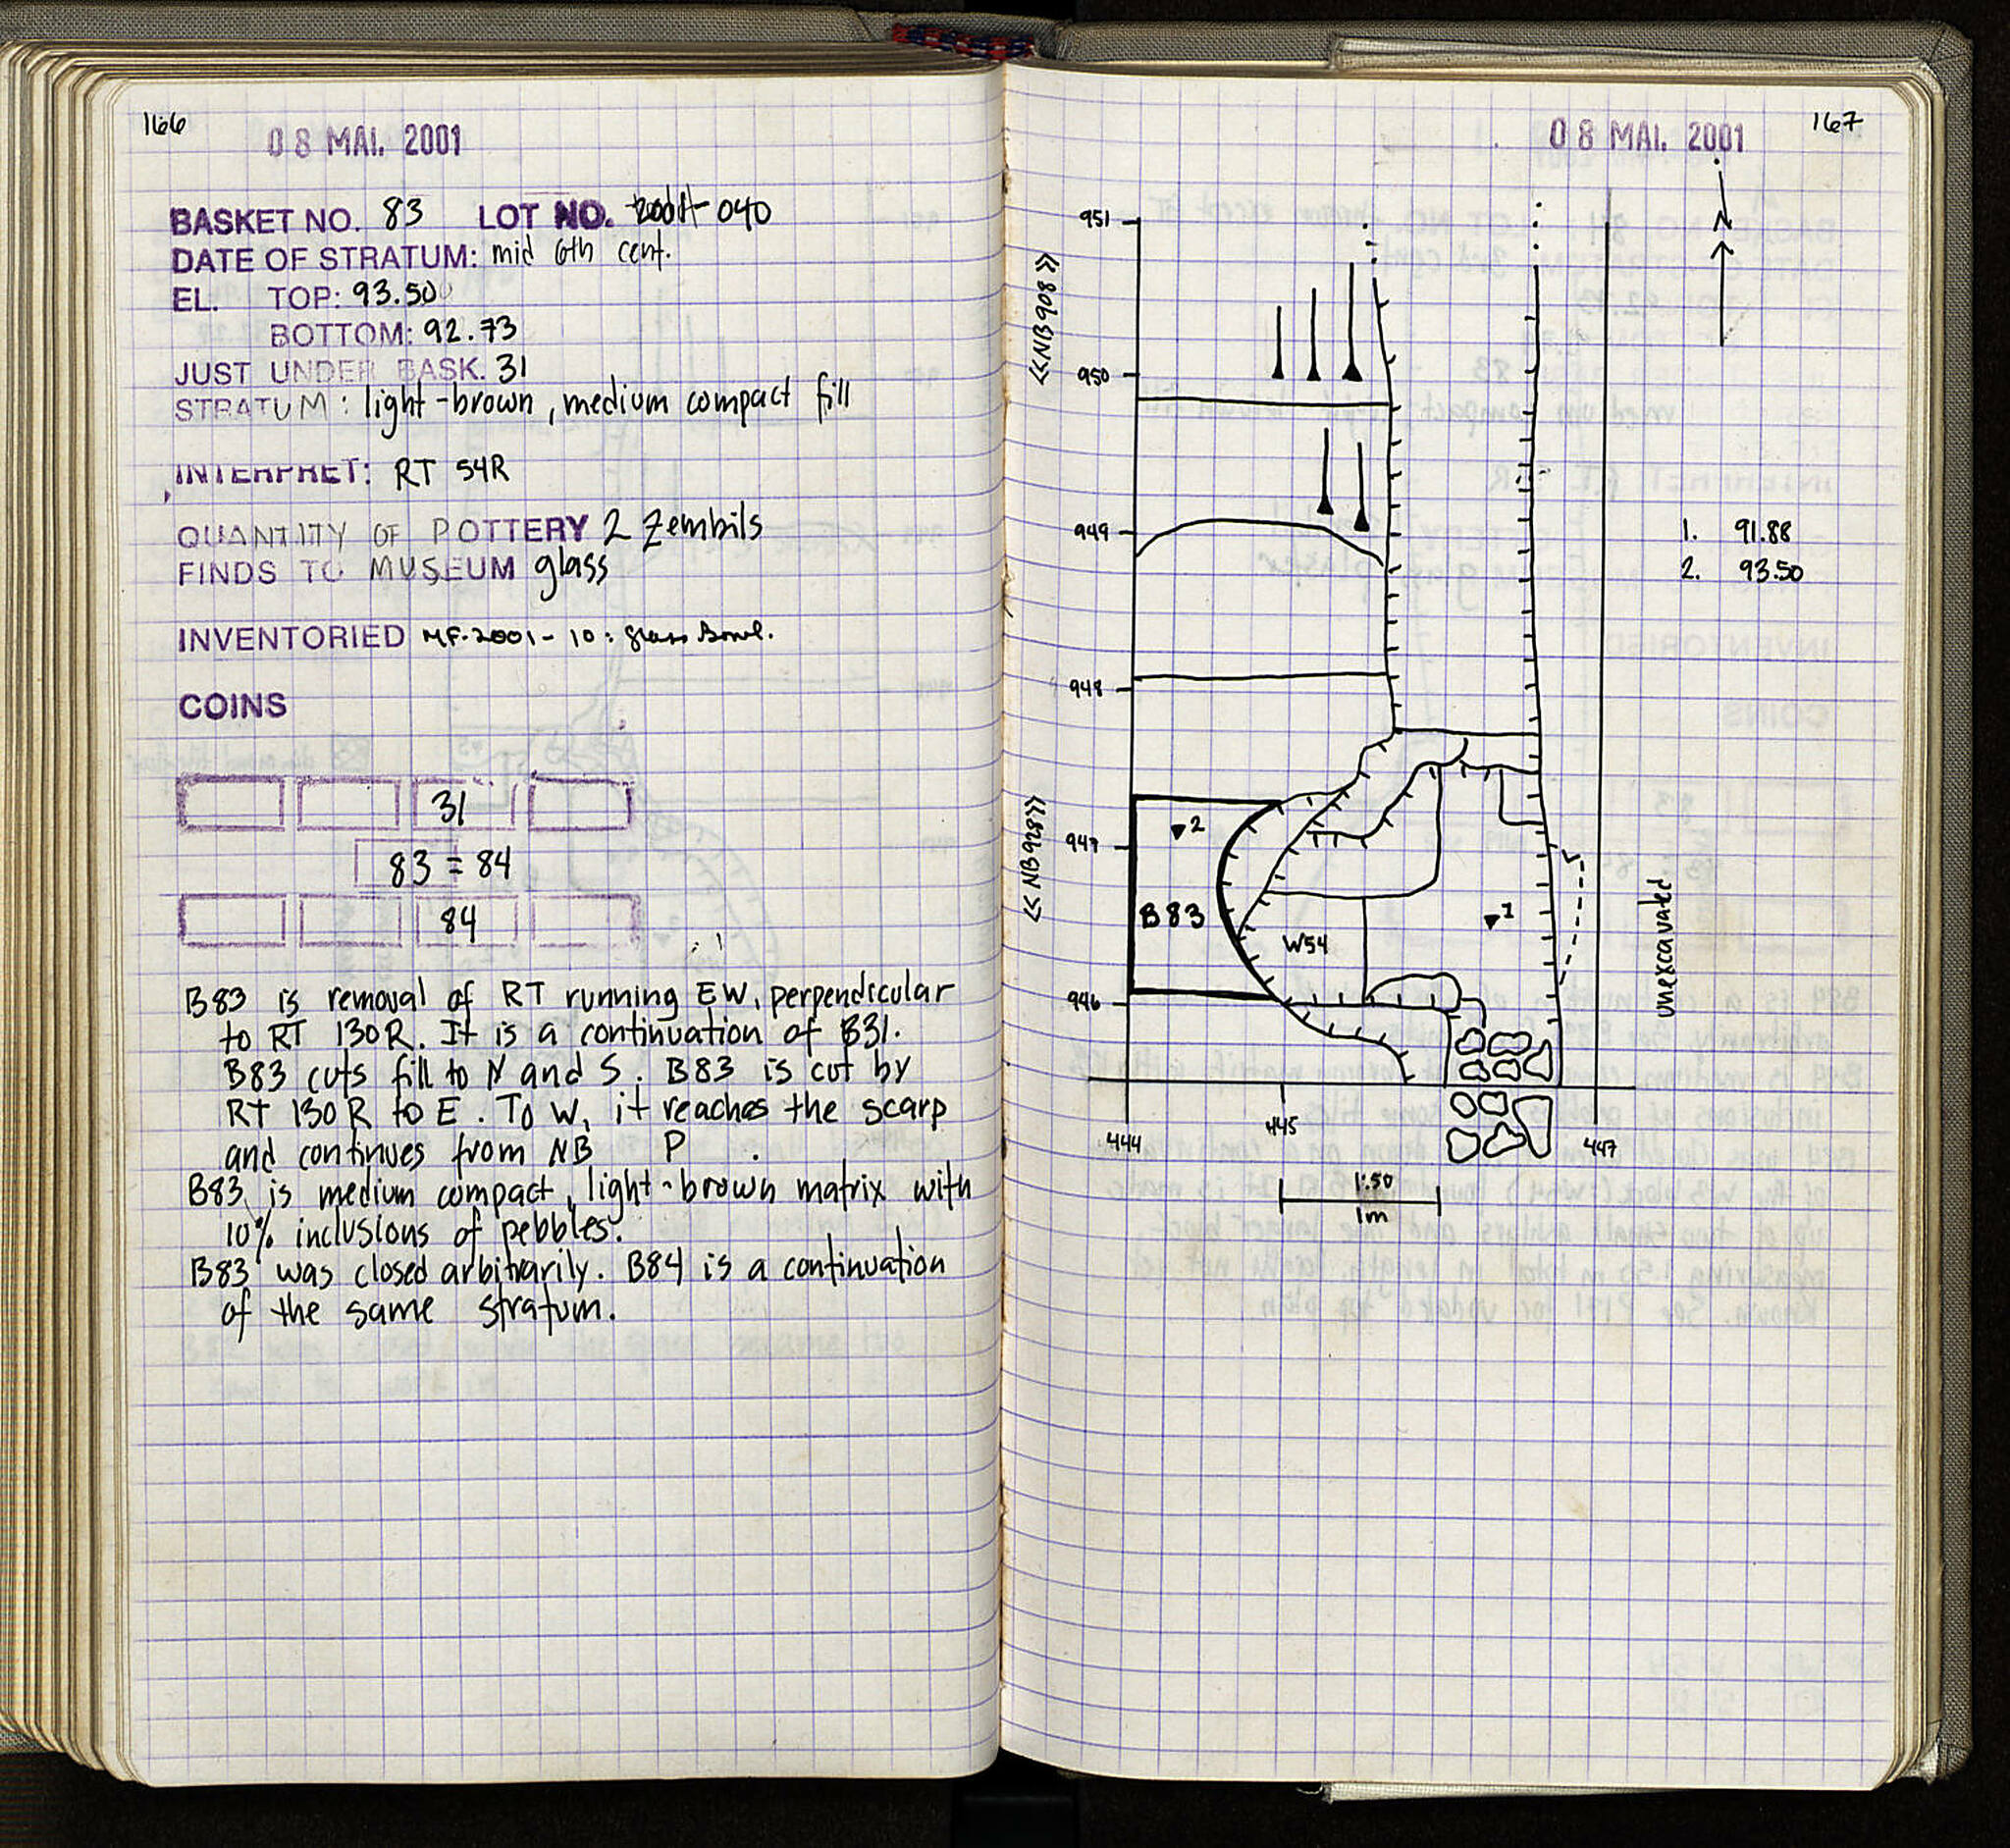 166
08 MAI. 2001
BASKET NO. 83 LOT NO. 040
DATE OF STRATUM: mid 6th cent.
EL. TOP: 93.50
BOTTOM: 92.73
JUST UNDER BASK. 31
STRATUM: light-brown, medium compact fill
INTERPRET: RT 54R
QUANTITY OF POTTERY 2 Zembils
FINDS TO MUSEUM glass
INVENTORIED MF-2001-10: glass Bowl.
COINS
31
83 = 84
84
B83 is removal of RT running EW, perpendicular
to RT 130R. It is a continuation of B31.
B83 cuts fill to N and S. B83 is cut by
RT 130R to E. To W, it reaches the scarp
and continues from NB P .
B83 is medium compact, light-brown matrix with
10% inclusions of pebbles.
B83 was closed arbitrarily. B84 is a continuation
of the same stratum.
167
08 MAI. 2001
N
951
<<NB908>>
950
949
1. 91.88
2. 93.50
948
<<NB928>>
947
2
B83
1
W54
unexcavated
946
444
445
447
1:50
1m